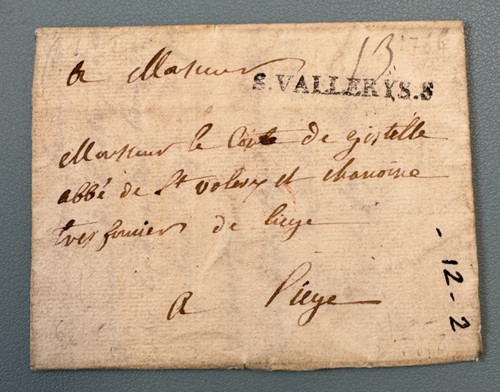 a Monsieur
13
1766
S.VALLERYS.S
Monsieur le Comte de gistelle
abbé de St valery et chanoine
tres foncier de liege
a Liege
-12-2